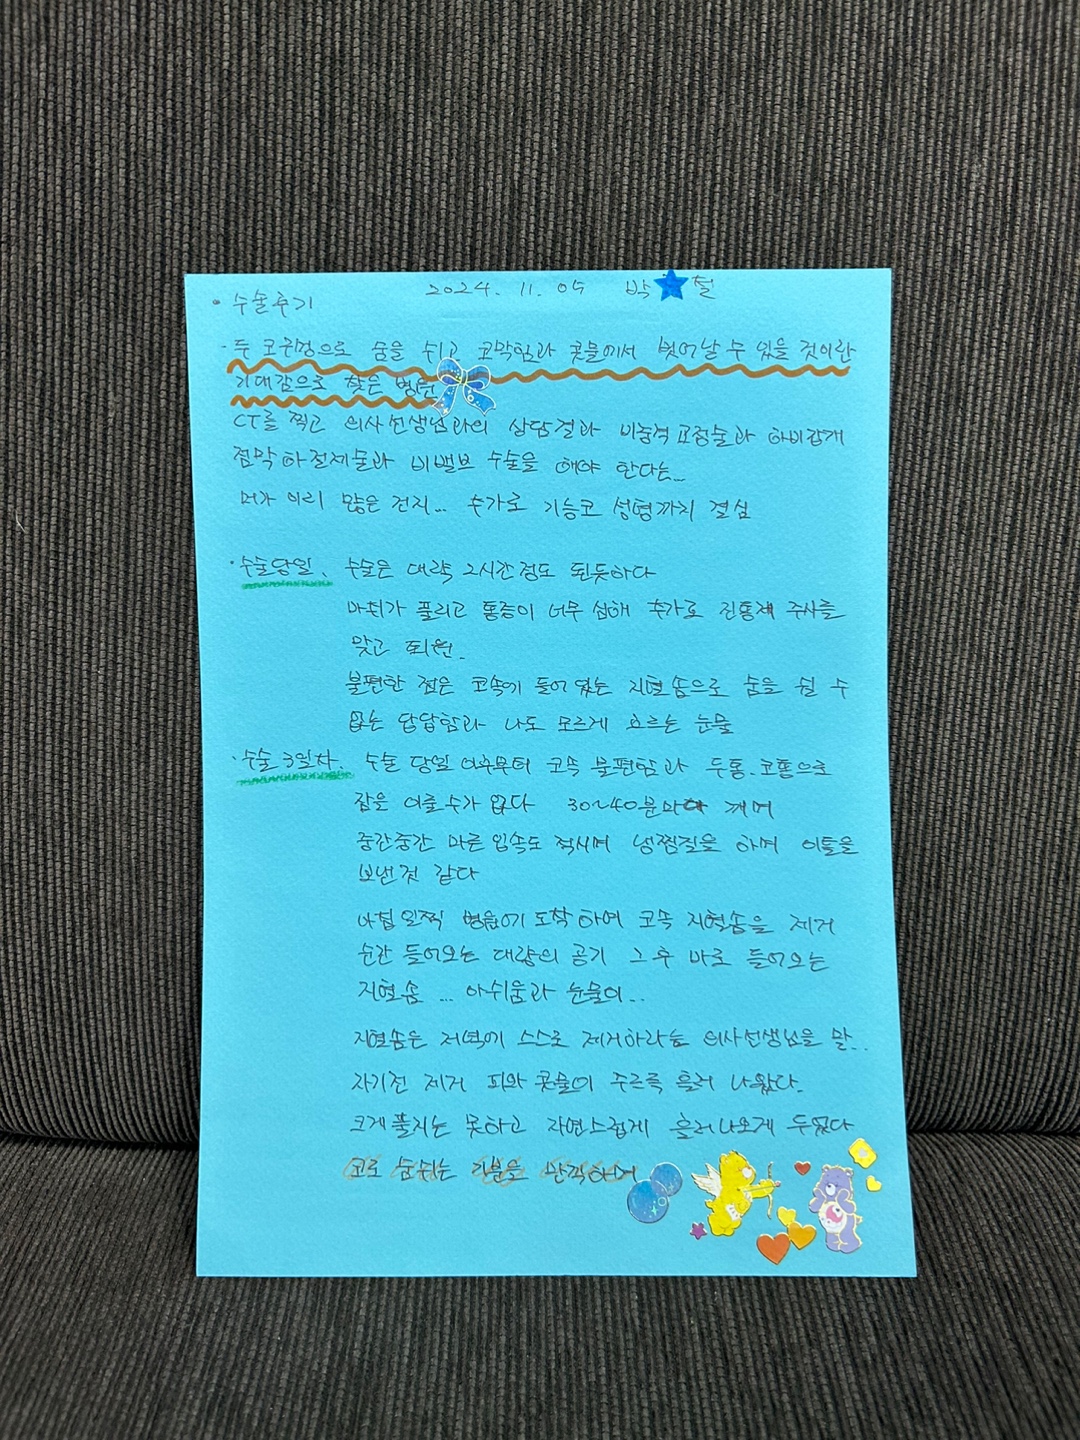 2024. 11. 05 박 철
• 수술후기
· 두 코구멍으로 숨을 쉬고 코막힘과 콧물에서 벗어날 수 있을 것이란
기대감으로 찾은 병원
CT를 찍고 의사선생님과의 상담결과 비중격교정술과 하비갑개
점막하절제술과 비밸브 수술을 해야 한다는...
머가 이리 많은 건지... 추가로 기능코 성형까지 결심
· 수술당일. 수술은 대략 2시간 정도 된듯하다
마취가 풀리고 통증이 너무 심해 추가로 진통제 주사를
맞고 퇴원.
불편한 점은 코속에 들어 있는 지혈솜으로 숨을 쉴 수
없는 답답함과 나도 모르게 흐르는 눈물
· 수술 3일차. 수술 당일 이후부터 코속 불편함과 두통.코통으로
잠을 이룰수가 없다 30~40분마다 깨며
중간중간 마른 입속도 적시며 냉찜질을 하며 이틀을
보낸것 같다
아침 일찍 병원에 도착하여 코속 지혈솜을 제거
순간 들어오는 대량의 공기 그 후 바로 들어오는
지혈솜 ... 아쉬움과 눈물이..
지혈솜은 저녁에 스스로 제거하라는 의사선생님을 말..
자기전 제거 피와 콧물이 주르륵 흘러 나왔다.
크게 풀지는 못하고 자연스럽게 흘러나오게 두었다
코로 숨쉬는 기분을 만끽하며